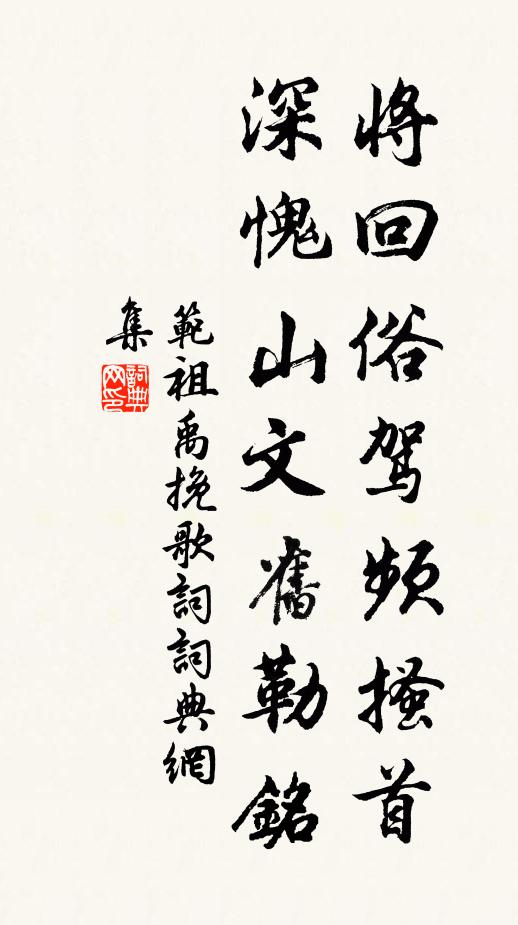 將回俗駕頻搔首
深愧山文舊勒銘
範祖禹挽歌詞詞典網
集
詞典网印